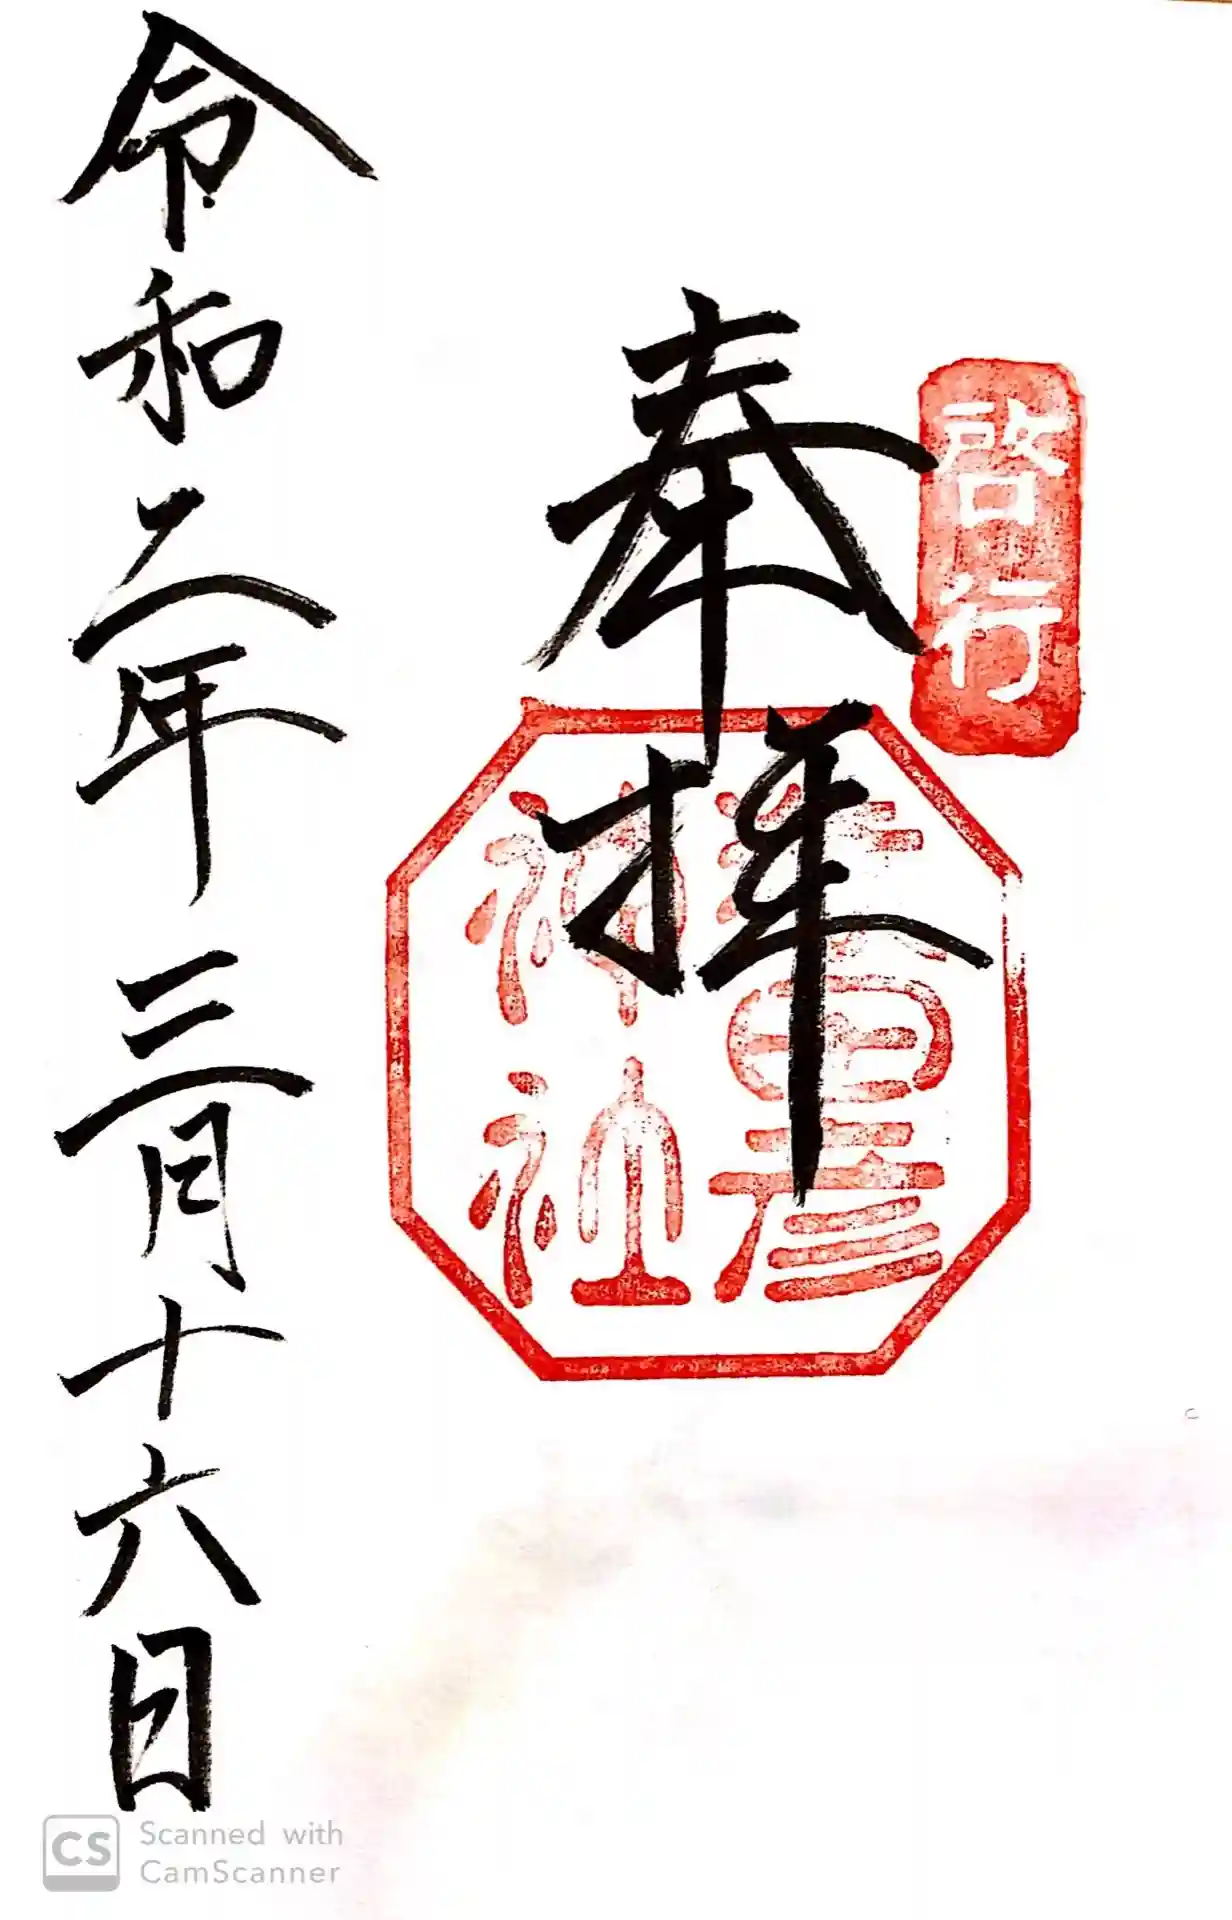 啓行
奉拝
猿田彦
神社
令和二年三月十六日
CS Scanned with
CamScanner